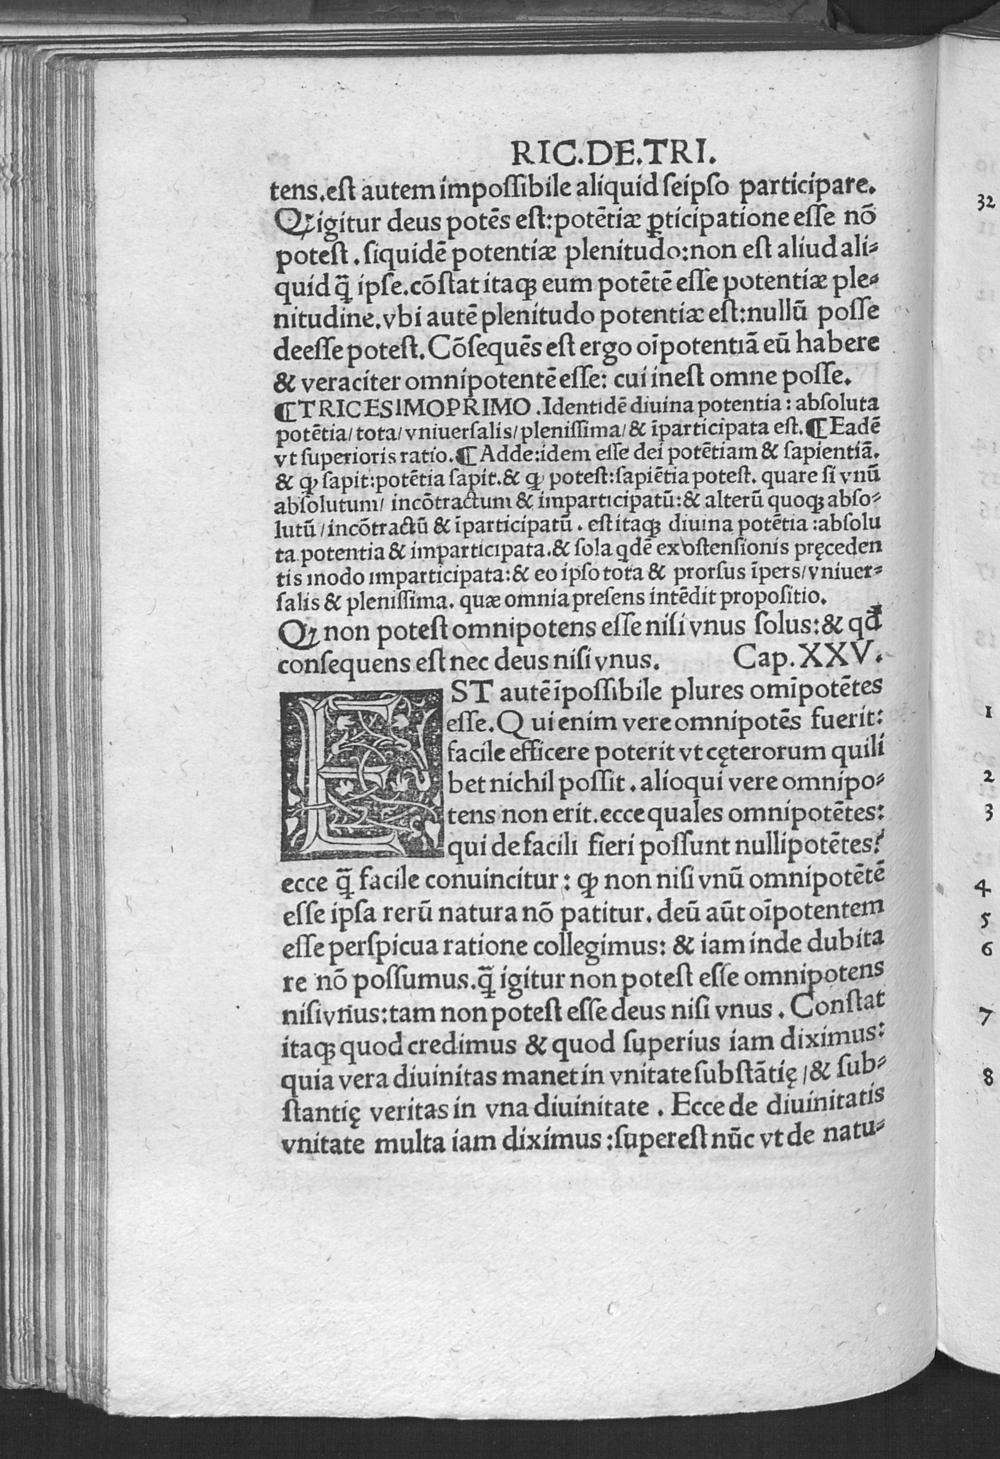 RIC.DE.TRI.
tens.est autem impossibile aliquid seipso participare.
Qꝫ igitur deus potēs est:potētiæ ꝑticipatione esse nō
potest . siquidē potentiæ plenitudo:non est aliud ali⸗
quid q̄ ipse.cōstat itaqꝫ eum potētē esse potentiæ ple⸗
nitudine.vbi autē plenitudo potentiæ est:nullū posse
deesse potest.Cōsequēs est ergo oīpotentiā eū habere
& veraciter omnipotentē esse: cui inest omne posse.
¶TRICESIMOPRIMO .Identidē diuina potentia : absoluta
potētia/ tota/ vniuersalis/ plenissima/ & īparticipata est.¶Eadē
vt superioris ratio.¶Adde:idem esse dei potētiam & sapientiā.
& ꝙ sapit:potētia sapit.& ꝙ potest:sapiētia potest. quare si vnū
absolutum/ incōtractum & imparticipatū:& alterū quoqꝫ abso⸗
lutū/incōtractū & īparticipatū . est itaqꝫ diuina potētia :absolu
ta potentia & imparticipata.& sola qdē ex ostensionis pręceden
tis modo imparticipata:& eo ipso tota & prorsus īpers/vniuer⸗
salis & plenissima. quæ omnia presens intēdit propositio.
Qꝫ non potest omnipotens esse nisi vnus solus:& qđ
consequens est nec deus nisi vnus. Cap.XXV.
EST autē īpossibile plures omīpotētes
esse.Qui enim vere omnipotēs fuerit:
facile efficere poterit vt cęterorum quili
bet nichil possit . alioqui vere omnipo⸗
tens non erit.ecce quales omnipotētes:
qui de facili fieri possunt nullipotētes?
ecce q̄ facile conuincitur: ꝙ non nisi vnū omnipotētē
esse ipsa rerū natura nō patitur. deū aūt oīpotentem
esse perspicua ratione collegimus: & iam inde dubita
re nō possumus.q̄ igitur non potest esse omnipotens
nisi vnus:tam non potest esse deus nisi vnus . Constat
itaqꝫ quod credimus & quod superius iam diximus:
quia vera diuinitas manet in vnitate substātię/& sub⸗
stantię veritas in vna diuinitate . Ecce de diuinitatis
vnitate multa iam diximus :superest nūc vt de natu⸗
32
1
2
3
4
5
6
7
8